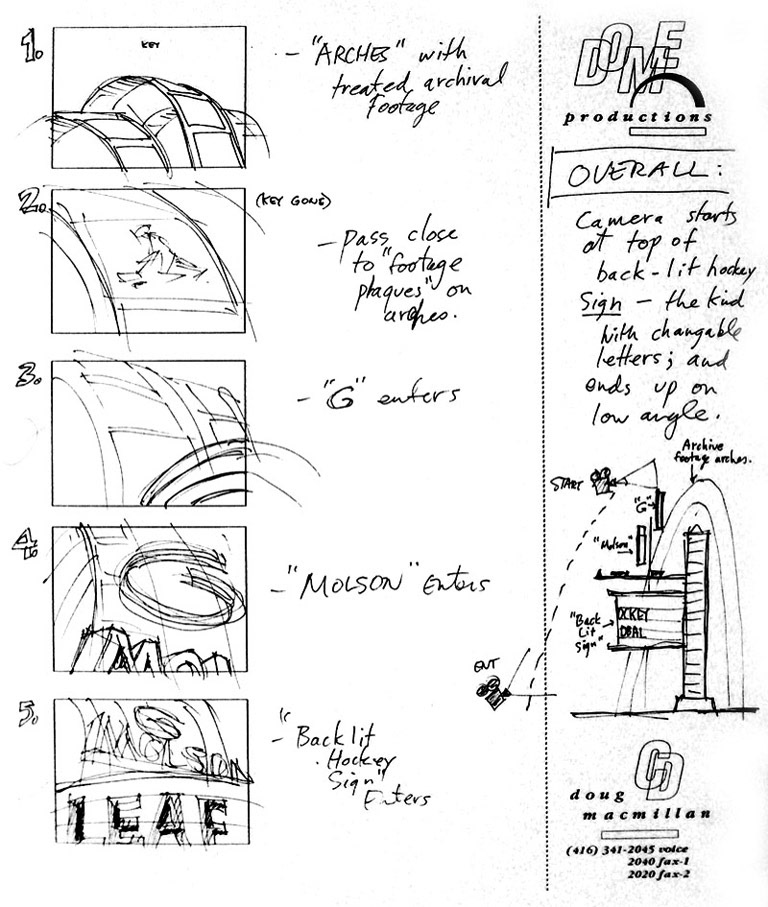 1.
KEY
- "ARCHES" with
treated archival
footage
2.
(KEY GONE)
- pass close
to "footage
plaques" on
arches.
3.
- "G" enters
4.
MOLSON
- "MOLSON" Enters
5.
MOLSON
LEAF
- "Backlit
Hockey
Sign"
Enters
DOME
productions
OVERALL:
Camera starts
at top of
back-lit hockey
Sign - the kind
with changable
letters; and
ends up on
low angle.
Archive
footage arches.
START
"G"
"Molson"
"Back
Lit
Sign"
OCKEY
doug
macmillan
(416) 341-2045 voice
2040 fax-1
2020 fax-2